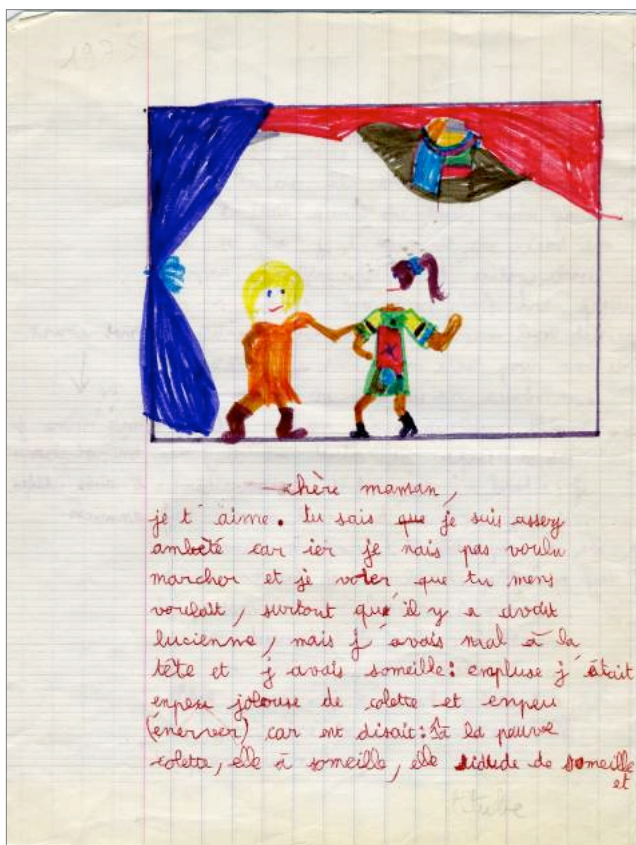 chère maman,
je t'aime. tu sais que je suis assez
ambêté car ier je nais pas voulu
marcher et je voter que tu mens
voulait, surtout qu'il y a avait
lucienne, mais j'avais mal à la
tête et j avais someille: empluse j'était
enpeu jolouse de colette et enpeu
(énerver) car ont disait: la pauvre
colette, elle à someille, elle de someille
et
titube